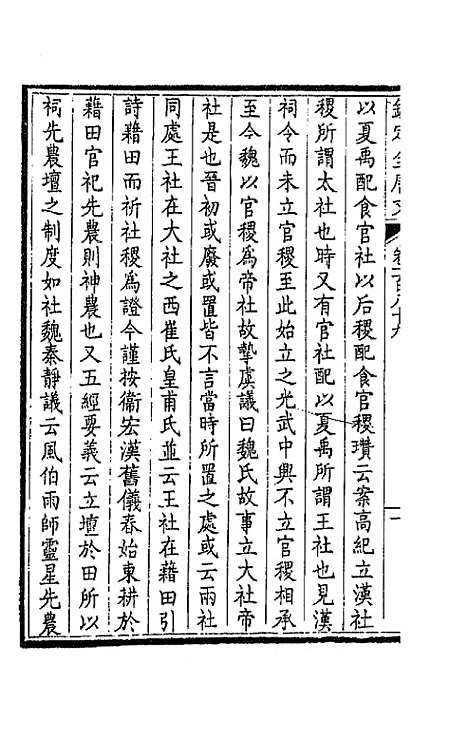 以夏禹配食官社以后稷配食官稷瓚云案高紀立漢社
稷所謂太社也時又有官社配以夏禹所謂王社也見漢
祠令而未立官稷至此始立之光武中興不立官稷相承
至今魏以官稷爲帝社故摯虞議曰魏氏故事立大社帝
社是也晉初或廢或置皆不言當時所置之處或云兩社
同處王社在大社之西崔氏皇甫氏並云王社在藉田引
詩藉田而祈社稷爲證今謹按衞宏漢舊儀春始東耕於
藉田官祀先農則神農也又五經要義云立壇於田所以
祠先農壇之制度如社魏秦靜議云風伯雨師靈星先農